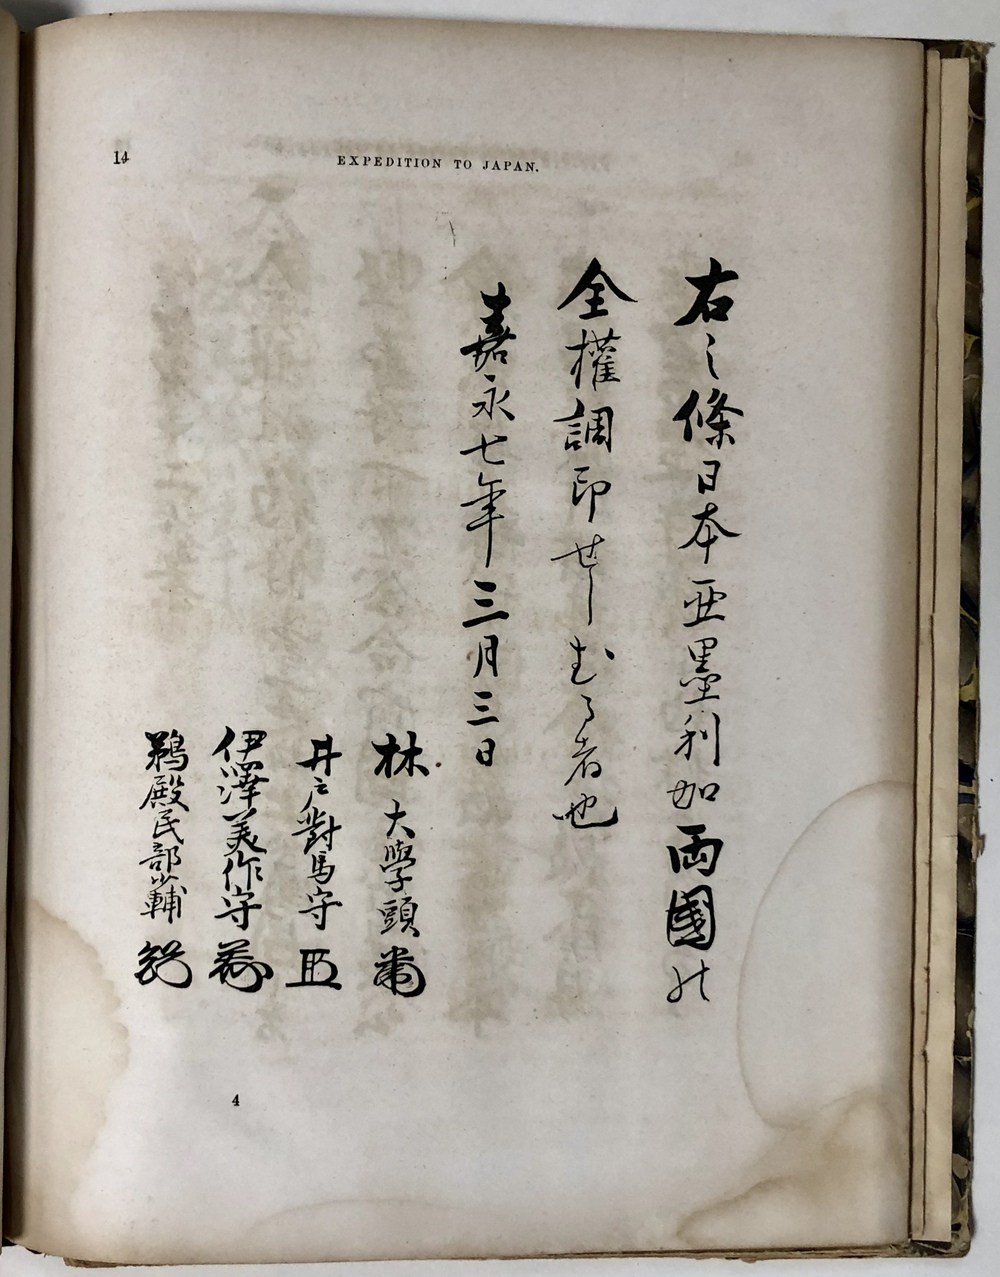 14
EXPEDITION TO JAPAN.
右之條日本亜墨利加両國の
全權調印せしむる者也
嘉永七年三月三日
林 大學頭
井戸對馬守
伊澤美作守
鵜殿民部少輔
4